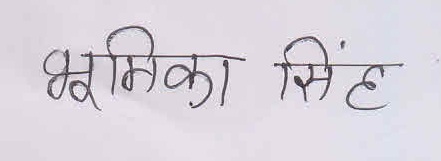 भूमिका सिंह